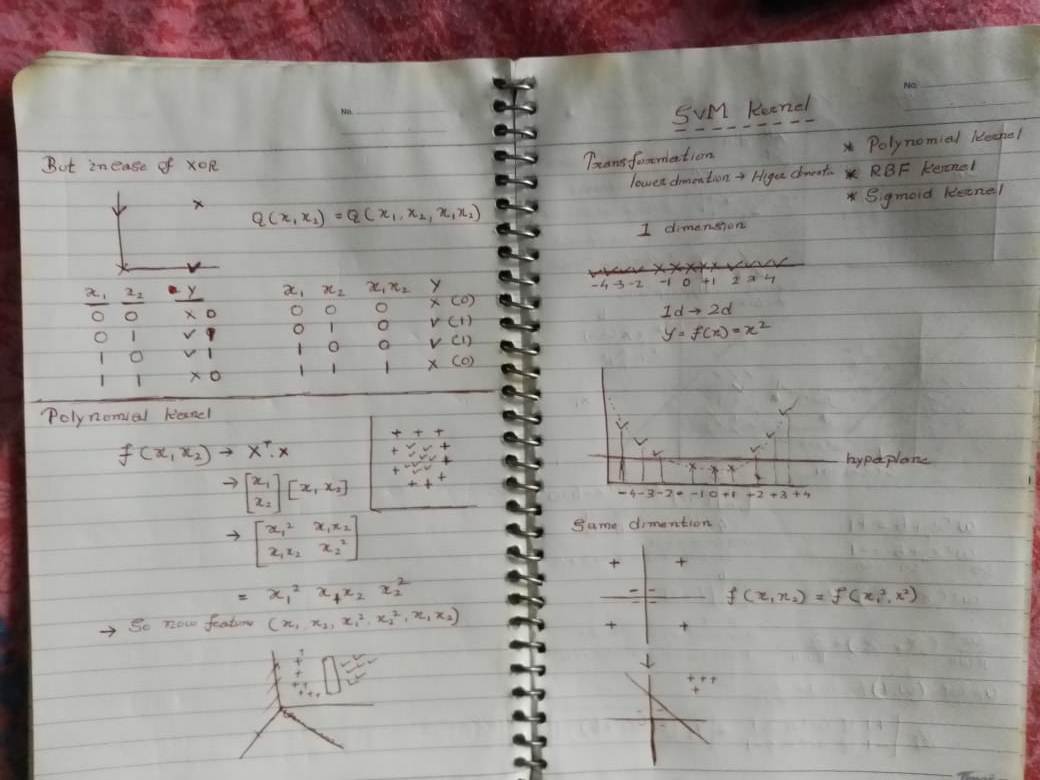 No.
But incase of XOR
Q(x1 x2) = Q(x1, x2, x1x2)
x1 x2 Y x1 x2 x1x2 Y
0 0 x 0 0 0 0 x (0)
0 1 ✓ 1 0 1 0 ✓ (1)
1 0 ✓ 1 1 0 0 ✓ (1)
1 1 x 0 1 1 1 x (0)
Polynomial Kernel
f(x1 x2) → X^T. x
→ [x1 x2] [x1 x2]
→ [x1² x1x2
x1x2 x2²]
= x1² x1x2 x2²
→ So now feature (x1 x2, x1², x2², x1x2)
No.
SVM Kernel
Transformation
lower dimention → Higer
* Polynomial Kernel
* RBF Kernel
* Sigmoid Kernel
1 dimension
-4 -3 -2 -1 0 +1 2 3 4
1d → 2d
y = f(x) = x²
hypeplane
-4 -3 -2 -1 0 +1 +2 +3 +4
Same dimention
f(x1 x2) = f(x1², x²)